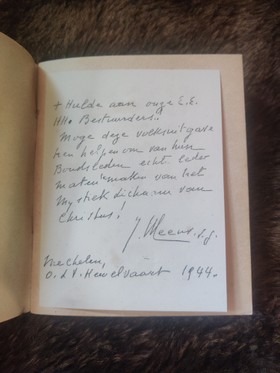 + Hulde aan onze E.E.
HHn Bestuurders!
Moge deze volksuitgave
hen helpen om van hun
Bondsleden echt leder
maten maken van het
Mystiek dichaam van
Christus!
J. Meeus. s.j.
Mechelen,
O.L.V. Hemelvaart 1944.